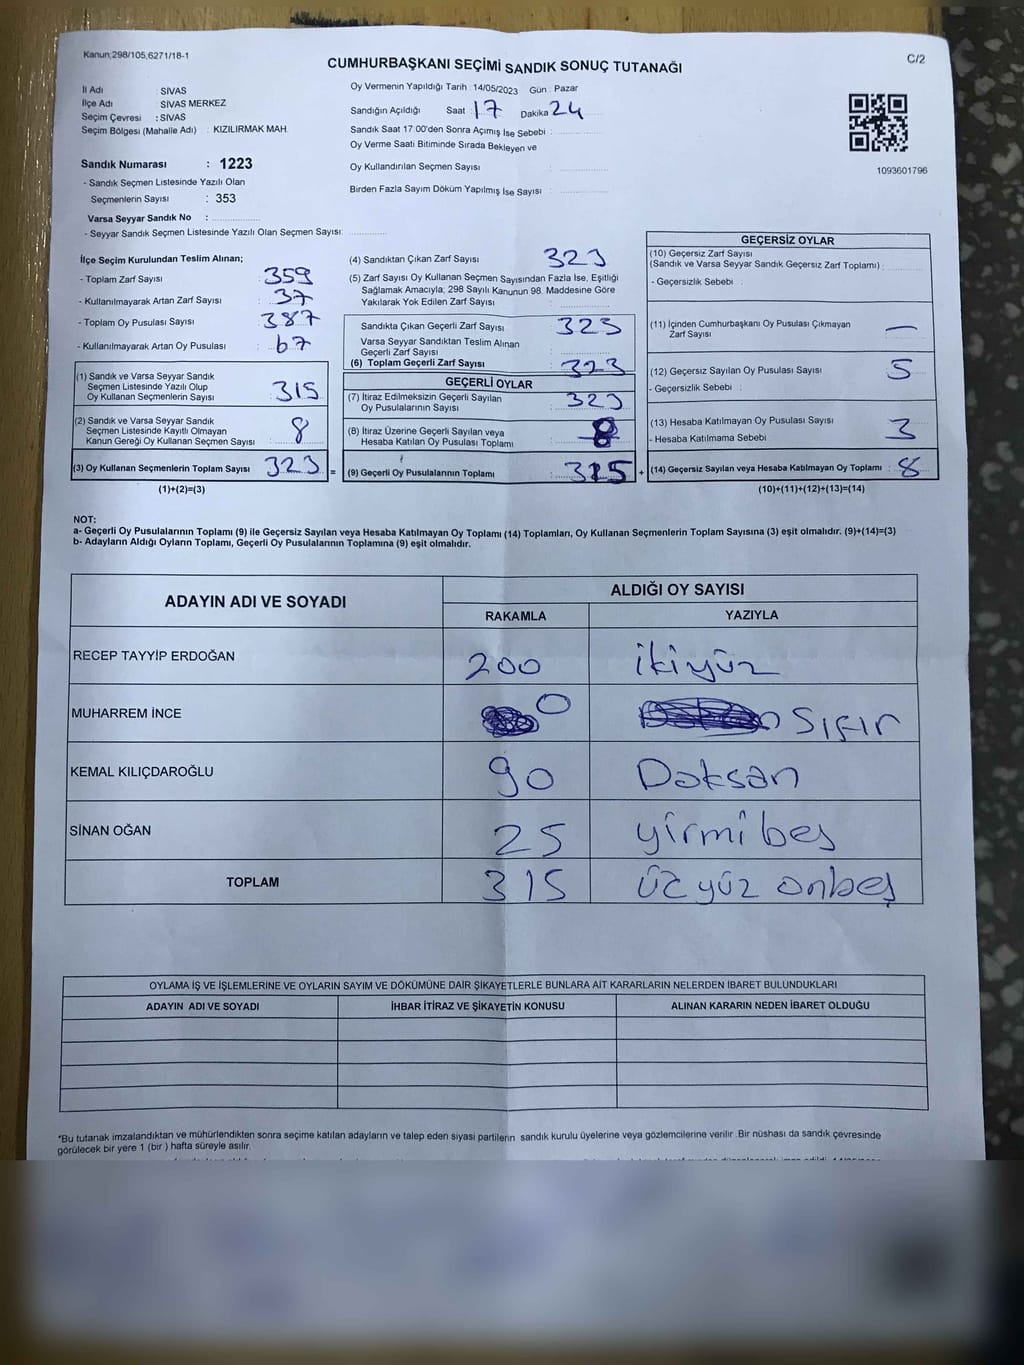 Kanun;298/105,6271/18-1
C/2
CUMHURBAŞKANI SEÇİMİ SANDIK SONUÇ TUTANAĞI
İl Adı : SİVAS
İlçe Adı : SİVAS MERKEZ
Seçim Çevresi : SİVAS
Seçim Bölgesi (Mahalle Adı) : KIZILIRMAK MAH.
Sandık Numarası : 1223
- Sandık Seçmen Listesinde Yazılı Olan
Seçmenlerin Sayısı : 353
Varsa Seyyar Sandık No :
- Seyyar Sandık Seçmen Listesinde Yazılı Olan Seçmen Sayısı:
Oy Vermenin Yapıldığı Tarih : 14/05/2023 Gün : Pazar
Sandığın Açıldığı Saat : 17 Dakika 24
Sandık Saat 17:00'den Sonra Açımış İse Sebebi :
Oy Verme Saati Bitiminde Sırada Bekleyen ve
Oy Kullandırılan Seçmen Sayısı :
Birden Fazla Sayım Döküm Yapılmış İse Sayısı :
1093601796
İlçe Seçim Kurulundan Teslim Alınan;
- Toplam Zarf Sayısı : 359
- Kullanılmayarak Artan Zarf Sayısı : 37
- Toplam Oy Pusulası Sayısı : 387
- Kullanılmayarak Artan Oy Pusulası : 67
(1) Sandık ve Varsa Seyyar Sandık
Seçmen Listesinde Yazılı Olup
Oy Kullanan Seçmenlerin Sayısı : 315
(2) Sandık ve Varsa Seyyar Sandık
Seçmen Listesinde Kayıtlı Olmayan
Kanun Gereği Oy Kullanan Seçmen Sayısı : 8
(3) Oy Kullanan Seçmenlerin Toplam Sayısı : 323 =
(1)+(2)=(3)
(4) Sandıktan Çıkan Zarf Sayısı : 323
(5) Zarf Sayısı Oy Kullanan Seçmen Sayısından Fazla İse, Eşitliği
Sağlamak Amacıyla; 298 Sayılı Kanunun 98. Maddesine Göre
Yakılarak Yok Edilen Zarf Sayısı :
Sandıkta Çıkan Geçerli Zarf Sayısı : 323
Varsa Seyyar Sandıktan Teslim Alınan
Geçerli Zarf Sayısı :
(6) Toplam Geçerli Zarf Sayısı : 323
GEÇERLİ OYLAR
(7) İtiraz Edilmeksizin Geçerli Sayılan
Oy Pusulalarının Sayısı : 323
(8) İtiraz Üzerine Geçerli Sayılan veya
Hesaba Katılan Oy Pusulası Toplamı :
(9) Geçerli Oy Pusulalarının Toplamı : 315 +
GEÇERSİZ OYLAR
(10) Geçersiz Zarf Sayısı
(Sandık ve Varsa Seyyar Sandık Geçersiz Zarf Toplamı) :
- Geçersizlik Sebebi :
(11) İçinden Cumhurbaşkanı Oy Pusulası Çıkmayan
Zarf Sayısı : —
(12) Geçersiz Sayılan Oy Pusulası Sayısı : 5
- Geçersizlik Sebebi :
(13) Hesaba Katılmayan Oy Pusulası Sayısı : 3
- Hesaba Katılmama Sebebi :
(14) Geçersiz Sayılan veya Hesaba Katılmayan Oy Toplamı : 8
(10)+(11)+(12)+(13)=(14)
NOT:
a- Geçerli Oy Pusulalarının Toplamı (9) ile Geçersiz Sayılan veya Hesaba Katılmayan Oy Toplamı (14) Toplamları, Oy Kullanan Seçmenlerin Toplam Sayısına (3) eşit olmalıdır. (9)+(14)=(3)
b- Adayların Aldığı Oyların Toplamı, Geçerli Oy Pusulalarının Toplamına (9) eşit olmalıdır.
ADAYIN ADI VE SOYADI
ALDIĞI OY SAYISI
RAKAMLA YAZIYLA
RECEP TAYYİP ERDOĞAN 200 ikiyüz
MUHARREM İNCE 0 Sıfır
KEMAL KILIÇDAROĞLU 90 Doksan
SİNAN OĞAN 25 yirmi beş
TOPLAM 315 üç yüz onbeş
OYLAMA İŞ VE İŞLEMLERİNE VE OYLARIN SAYIM VE DÖKÜMÜNE DAİR ŞİKAYETLERLE BUNLARA AİT KARARLARIN NELERDEN İBARET BULUNDUKLARI
ADAYIN ADI VE SOYADI İHBAR İTİRAZ VE ŞİKAYETİN KONUSU ALINAN KARARIN NEDEN İBARET OLDUĞU
*Bu tutanak imzalandıktan ve mühürlendikten sonra seçime katılan adayların ve talep eden siyasi partilerin sandık kurulu üyelerine veya gözlemcilerine verilir. Bir nüshası da sandık çevresinde
görülecek bir yere 1 (bir ) hafta süreyle asılır.